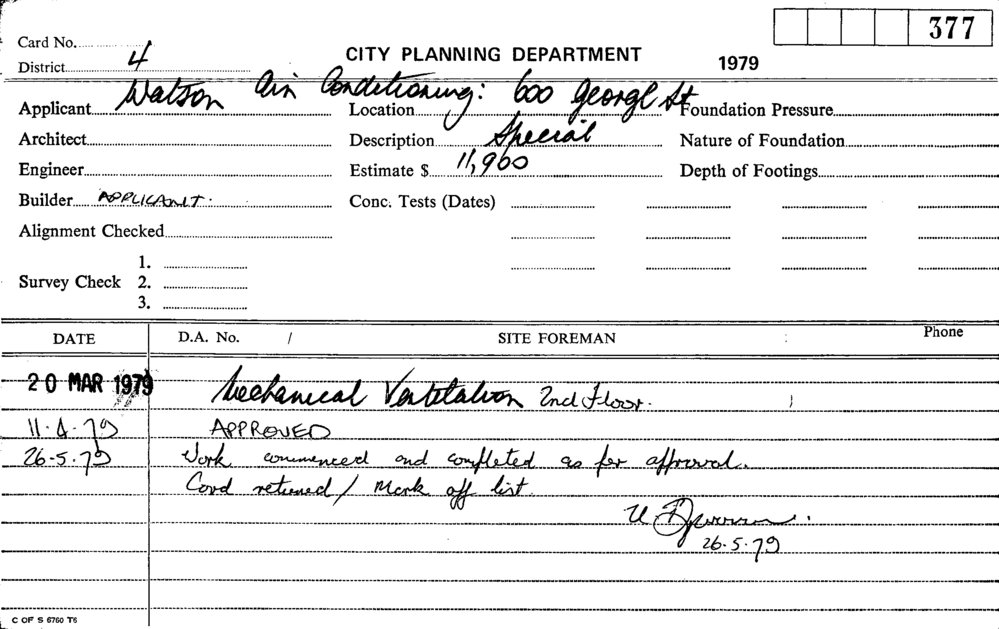 377
Card No.
District 4
CITY PLANNING DEPARTMENT 1979
Applicant Watson Air Conditioning: Location 600 George St Foundation Pressure
Architect Description Special Nature of Foundation
Engineer Estimate $ 11,960 Depth of Footings
Builder APPLICANT. Conc. Tests (Dates)
Alignment Checked
1.
Survey Check 2.
3.
DATE D.A. No. / SITE FOREMAN Phone
20 MAR 1979 Mechanical Ventilation 2nd Floor.
11.4.79 APPROVED
26-5.79 Work commenced and completed as per approval.
Card returned / Mark off list.
26.5.79
C OF S 6760 T6